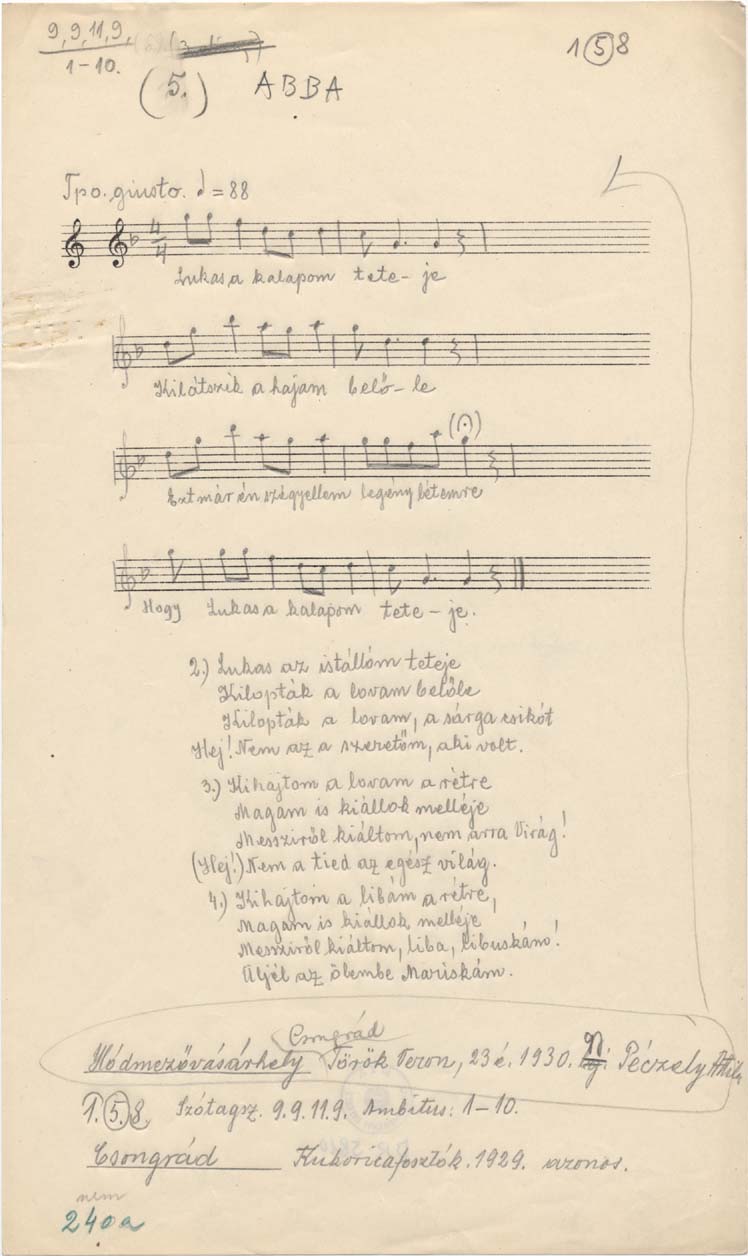 9,9,11,9,
1-10.
(5.) ABBA
1 5 8
Tpo. giusto. ♩=88
Lukas a kalapom tete-je
Kilátszik a hajam belő-le
Ezt már én szégyellem legény létemre
Hogy Lukas a kalapom tete-je.
2.) Lukas az istállóm teteje
Kilopták a lovam belőle
Kilopták a lovam, a sárga csikót
Hej! Nem az a szeretőm, aki volt.
3.) Kihajtom a lovam a rétre
Magam is kiállok melléje
Messziről kiáltom, nem arra Virág!
(Hej!) Nem a tied az egész világ.
4.) Kihajtom a libám a rétre,
Magam is kiállok melléje
Messziről kiáltom, liba, libuskám!
Üljél az ölembe Mariskám.
Csongrád
Hódmezővásárhely Török Veron, 23 é. 1930. gy. Péczely Attila
1. 5. 8. Szótagsz. 9.9.11.9. Ambitus: 1-10.
Csongrád Kukoricafosztók. 1929. azonos.
nem
240a